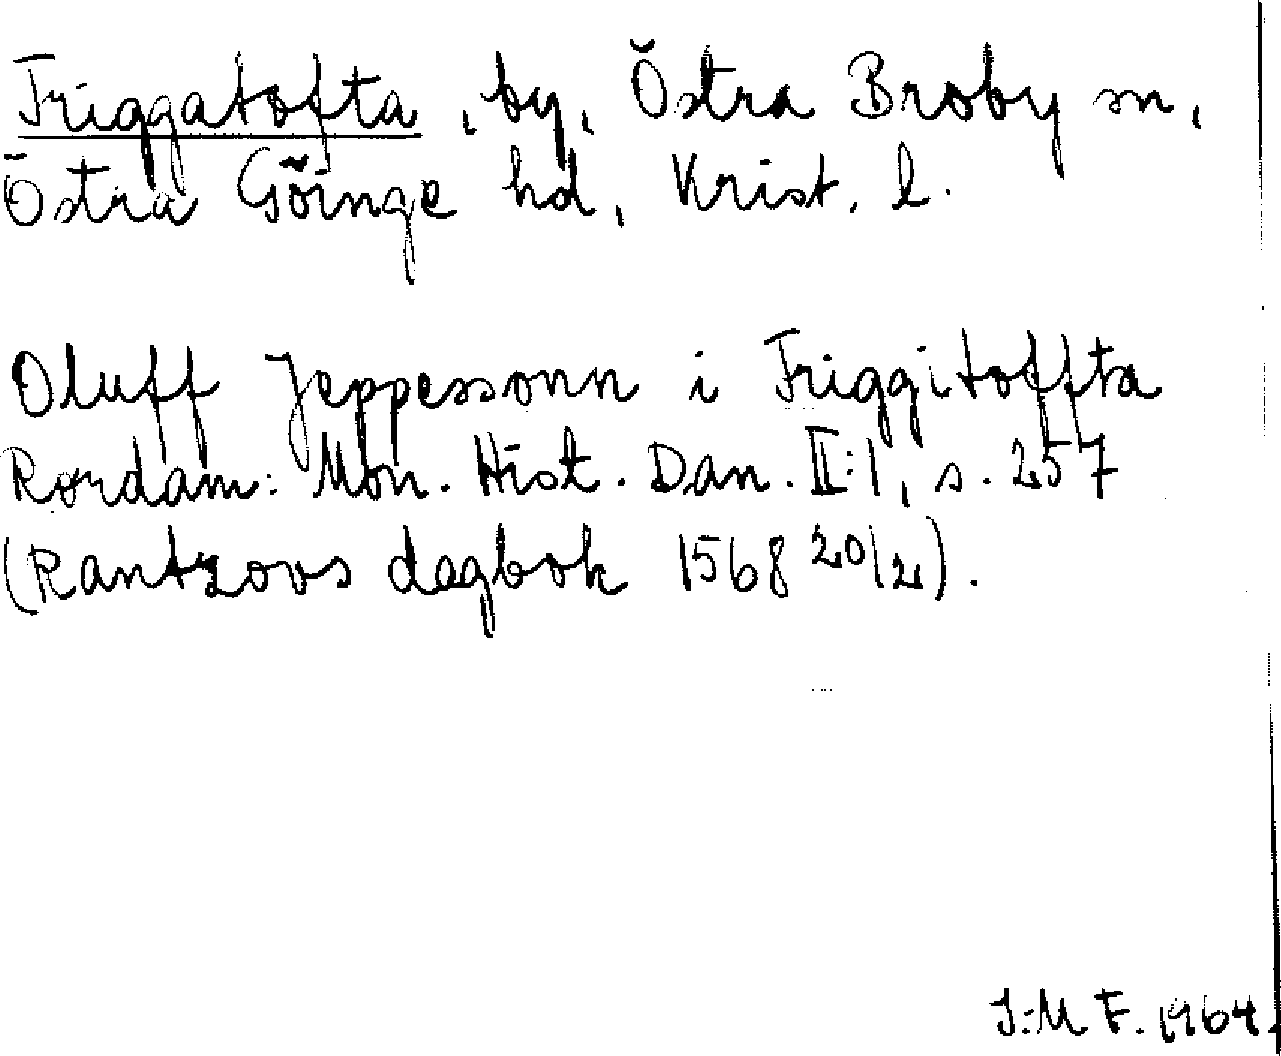 Friggatofta, by, Östra Broby sn,
Östra Göinge hd, Krist. l.
Oluff Jeppessonn i Friggitoffta
Rørdam: Mon. Hist. Dan. II:1, s. 257
(Rantzovs dagbok 1568 20/2).
I:M F. 1964.